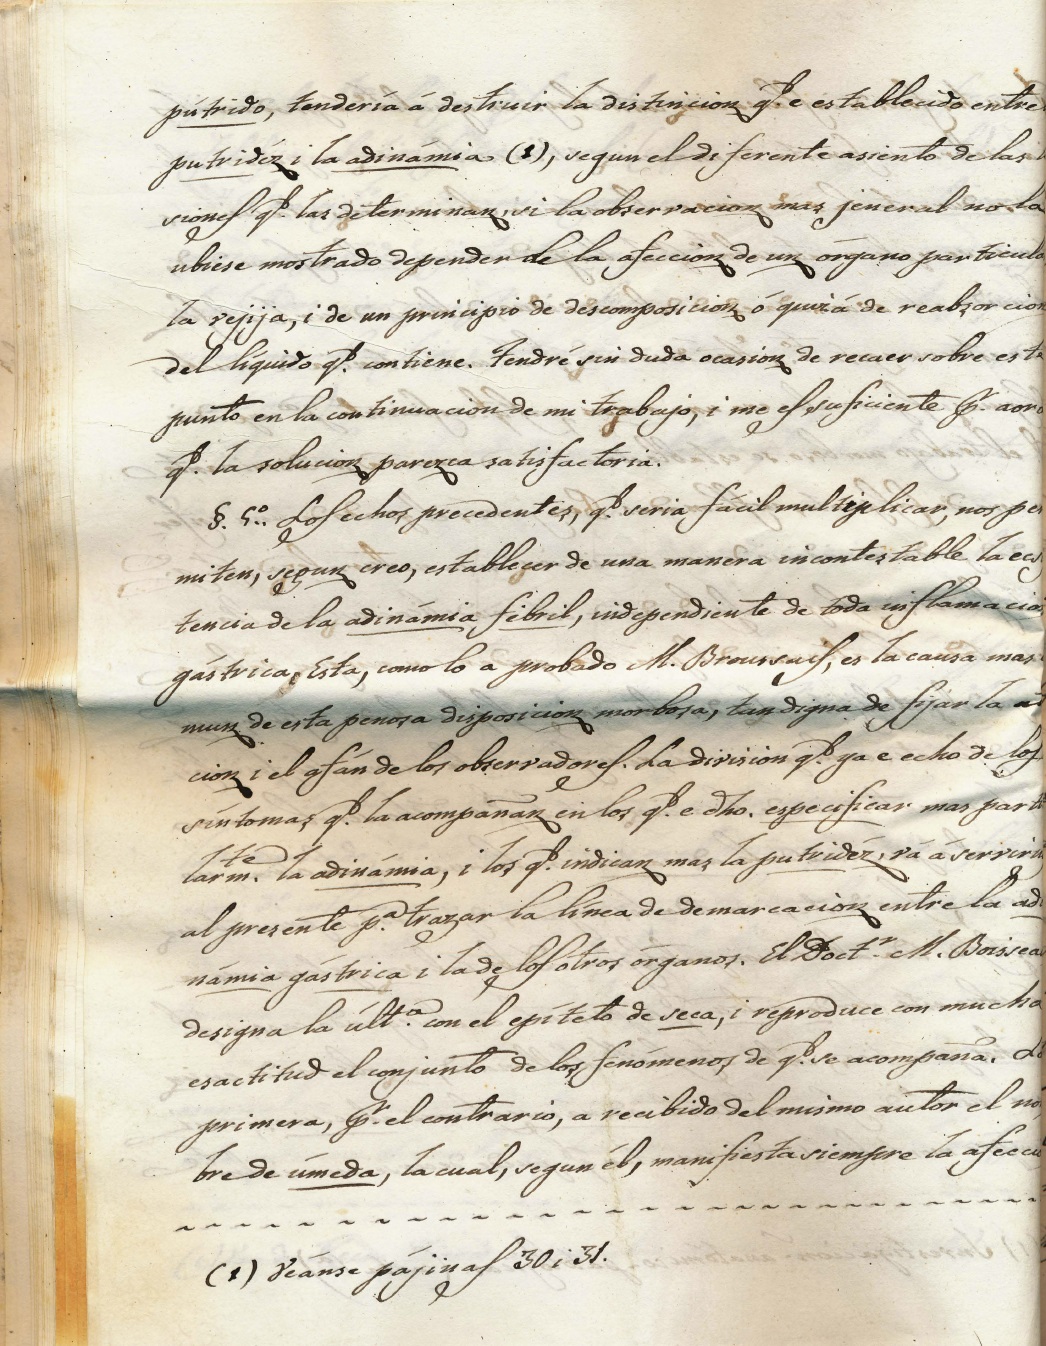 pútrido, tendería á destruir la distincion q.e e establecido entre
putridéz i la adinámia (1), segun el diferente asiento de las
siones q.e las determinan, si la observacion mas jeneral no la
ubiese mostrado depender de la afeccion de un órgano particula
la vejija, i de un principio de descomposicion ó quizá de reabsorcion
del líquido q.e contiene. Tendré sin duda ocasion de recaer sobre este
punto en la continuacion de mi trabajo, i me es suficiente p.r aora
q.e la solucion parezca satisfactoria.
§. 5.º Los echos precedentes, q.e seria fácil multiplicar, nos per
miten, segun creo, establecer de una manera incontestable la ecsis
tencia de la adinámia febril, independiente de toda inflamacion
gástrica. Esta, como lo a probado M. Broussais, es la causa mas
mun de esta penosa disposicion morbosa, tan digna de fijar la at
cion i el afán de los observadores. La division q.e ya e echo de los
síntomas q.e la acompañan en los q.e e dho. especificar mas parti
larm.te la adinámia, i los q.e indican mas la putridéz, vá á servirm
al presente p.a trazar la línea de demarcacion entre la adi
námia gástrica i la de los otros órganos. El Doct.r M. Boissea
designa la últ.a con el epíteto de seca, i reproduce con mucha
esactitud el conjunto de los fenómenos de q.e se acompaña. La
primera, p.r el contrario, a recibido del mismo autor el nom
bre de úmeda, la cual, segun él, manifiesta siempre la afecci
(1) Véanse pájinas 30 i 31.